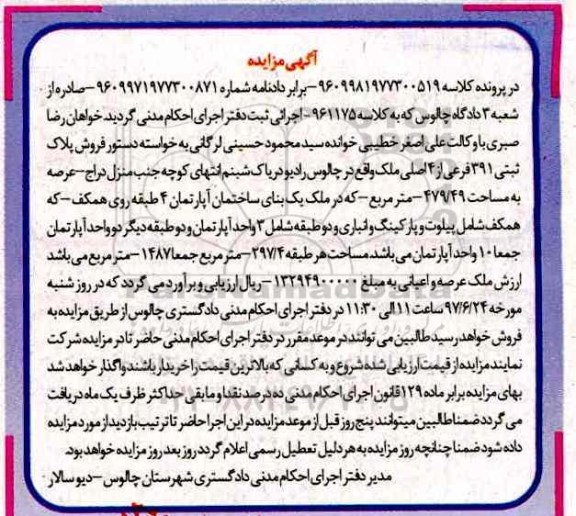 آگهی مزایده
در پرونده کلاسه ۹۶۰۹۹۸۱۹۷۷۳۰۰۵۱۹-برابر دادنامه شماره ۹۶۰۹۹۷۱۹۷۷۳۰۰۸۷۱-صادره از
شعبه ۳ دادگاه چالوس که به کلاسه ۹۶۱۱۷۵-اجرائی ثبت دفتر اجرای احکام مدنی گردید. خواهان رضا
صبری با وکالت علی اصغر خطیبی خوانده سید محمود حسینی لرگانی به خواسته دستور فروش پلاک
ثبتی ۳۹۱ فرعی از ۴ اصلی ملک واقع در چالوس رادیو دریاک شبنم انتهای کوچه جنب منزل دراج-عرصه
به مساحت ۴۷۹/۴۹-متر مربع-که در ملک یک بنای ساختمان آپارتمان ۴ طبقه روی همکف-که
همکف شامل پیلوت و پارکینگ و انباری و دو طبقه شامل ۳ واحد آپارتمان و دو طبقه دیگر دو واحد آپارتمان
جمعا ۱۰ واحد آپارتمان می باشد. مساحت هر طبقه ۲۹۷/۴-متر مربع جمعا ۱۴۸۷-متر مربع می باشد
ارزش ملک عرصه و اعیانی به مبلغ ۱۳۲۹۴۹۰۰۰۰۰-ریال ارزیابی و برآورد می گردد که در روز شنبه
مورخه ۹۷/۶/۲۴ ساعت ۱۱ الی ۱۱:۳۰ در دفتر اجرای احکام مدنی دادگستری چالوس از طریق مزایده به
فروش خواهد رسید طالبین می توانند در موعد مقرر در دفتر اجرای احکام مدنی حاضر تا در مزایده شرکت
نمایند مزایده از قیمت ارزیابی شده شروع و به کسانی که بالاترین قیمت را خریدار باشند واگذار خواهد شد
بهای مزایده برابر ماده ۱۲۹ قانون اجرای احکام مدنی ده درصد نقدا و مابقی حداکثر ظرف یک ماه دریافت
می گردد ضمنا طالبین میتوانند پنج روز قبل از موعد مزایده در این اجرا حاضر تا ترتیب بازدید از مورد مزایده
داده شود ضمنا چنانچه روز مزایده به هر دلیل تعطیل رسمی اعلام گردد روز بعد روز مزایده خواهد بود.
مدیر دفتر اجرای احکام مدنی دادگستری شهرستان چالوس-دیو سالار